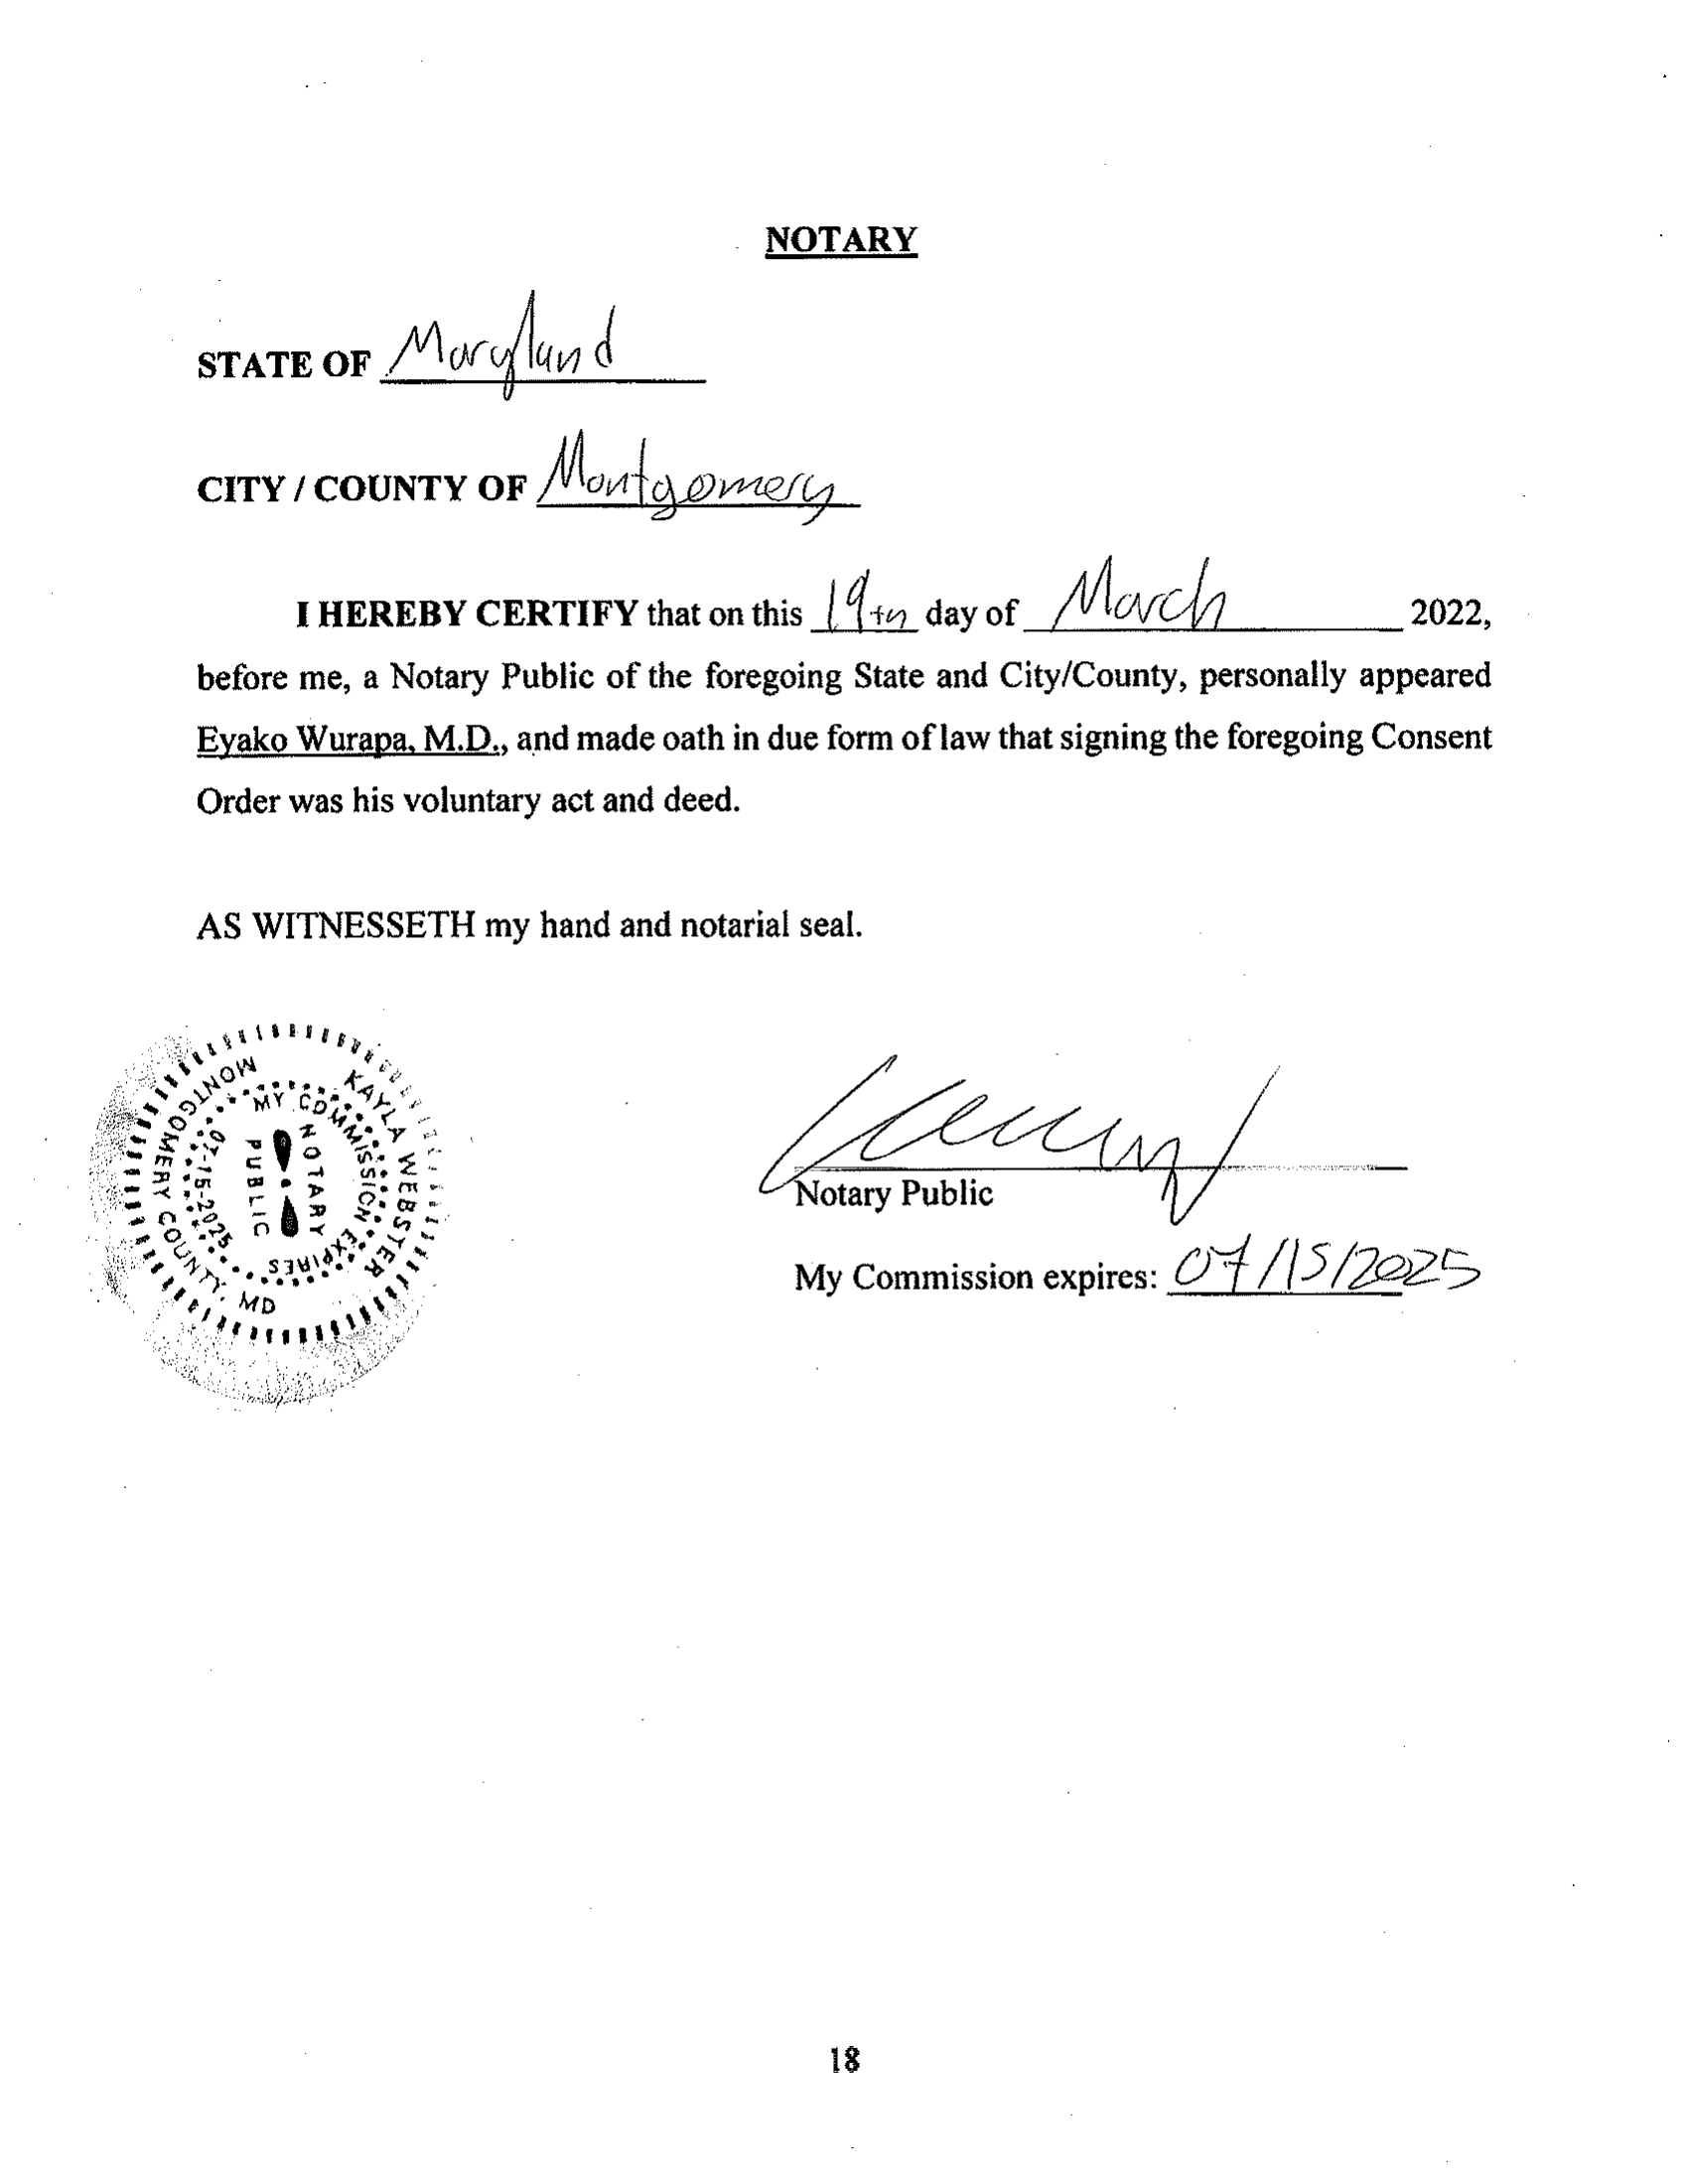 NOTARY
STATE OF Maryland
CITY / COUNTY OF Montgomery
I HEREBY CERTIFY that on this 19th day of March 2022,
before me, a Notary Public of the foregoing State and City/County, personally appeared
Eyako Wurapa, M.D., and made oath in due form of law that signing the foregoing Consent
Order was his voluntary act and deed.
AS WITNESSETH my hand and notarial seal.
KAYLA WEBSTER
MONTGOMERY COUNTY, MD
MY COMMISSION EXPIRES
07-15-2025
NOTARY
PUBLIC
Notary Public
My Commission expires: 07/15/2025
18